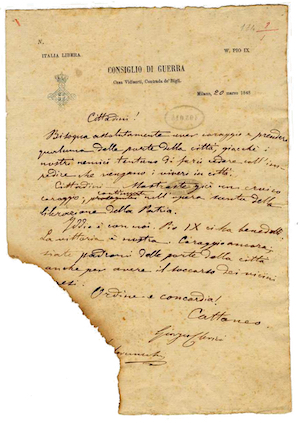 N.
ITALIA LIBERA.
W. PIO IX.
CONSIGLIO DI GUERRA
Casa Vidiserti, Contrada de' Bigli.
Milano, 20 marzo 1848
Cittadini!
Bisogna assolutamente aver coraggio e prendere
qualcuna delle porte della città giacchè i
nostri nemici tentano di farsi cedere coll'im-
pedire che vengano i viveri in città.
Cittadini Mostraste già un eroico
coraggio; continuate nell'opera santa della
liberazione della Patria.
Iddio è con noi. Pio IX ci ha benedetti.
La vittoria è nostra. Coraggio ancora;
siate padroni delle porte della città
anche per avere il soccorso dei vicini
Ordine e concordia!
Cattaneo
Giorgio Clerici